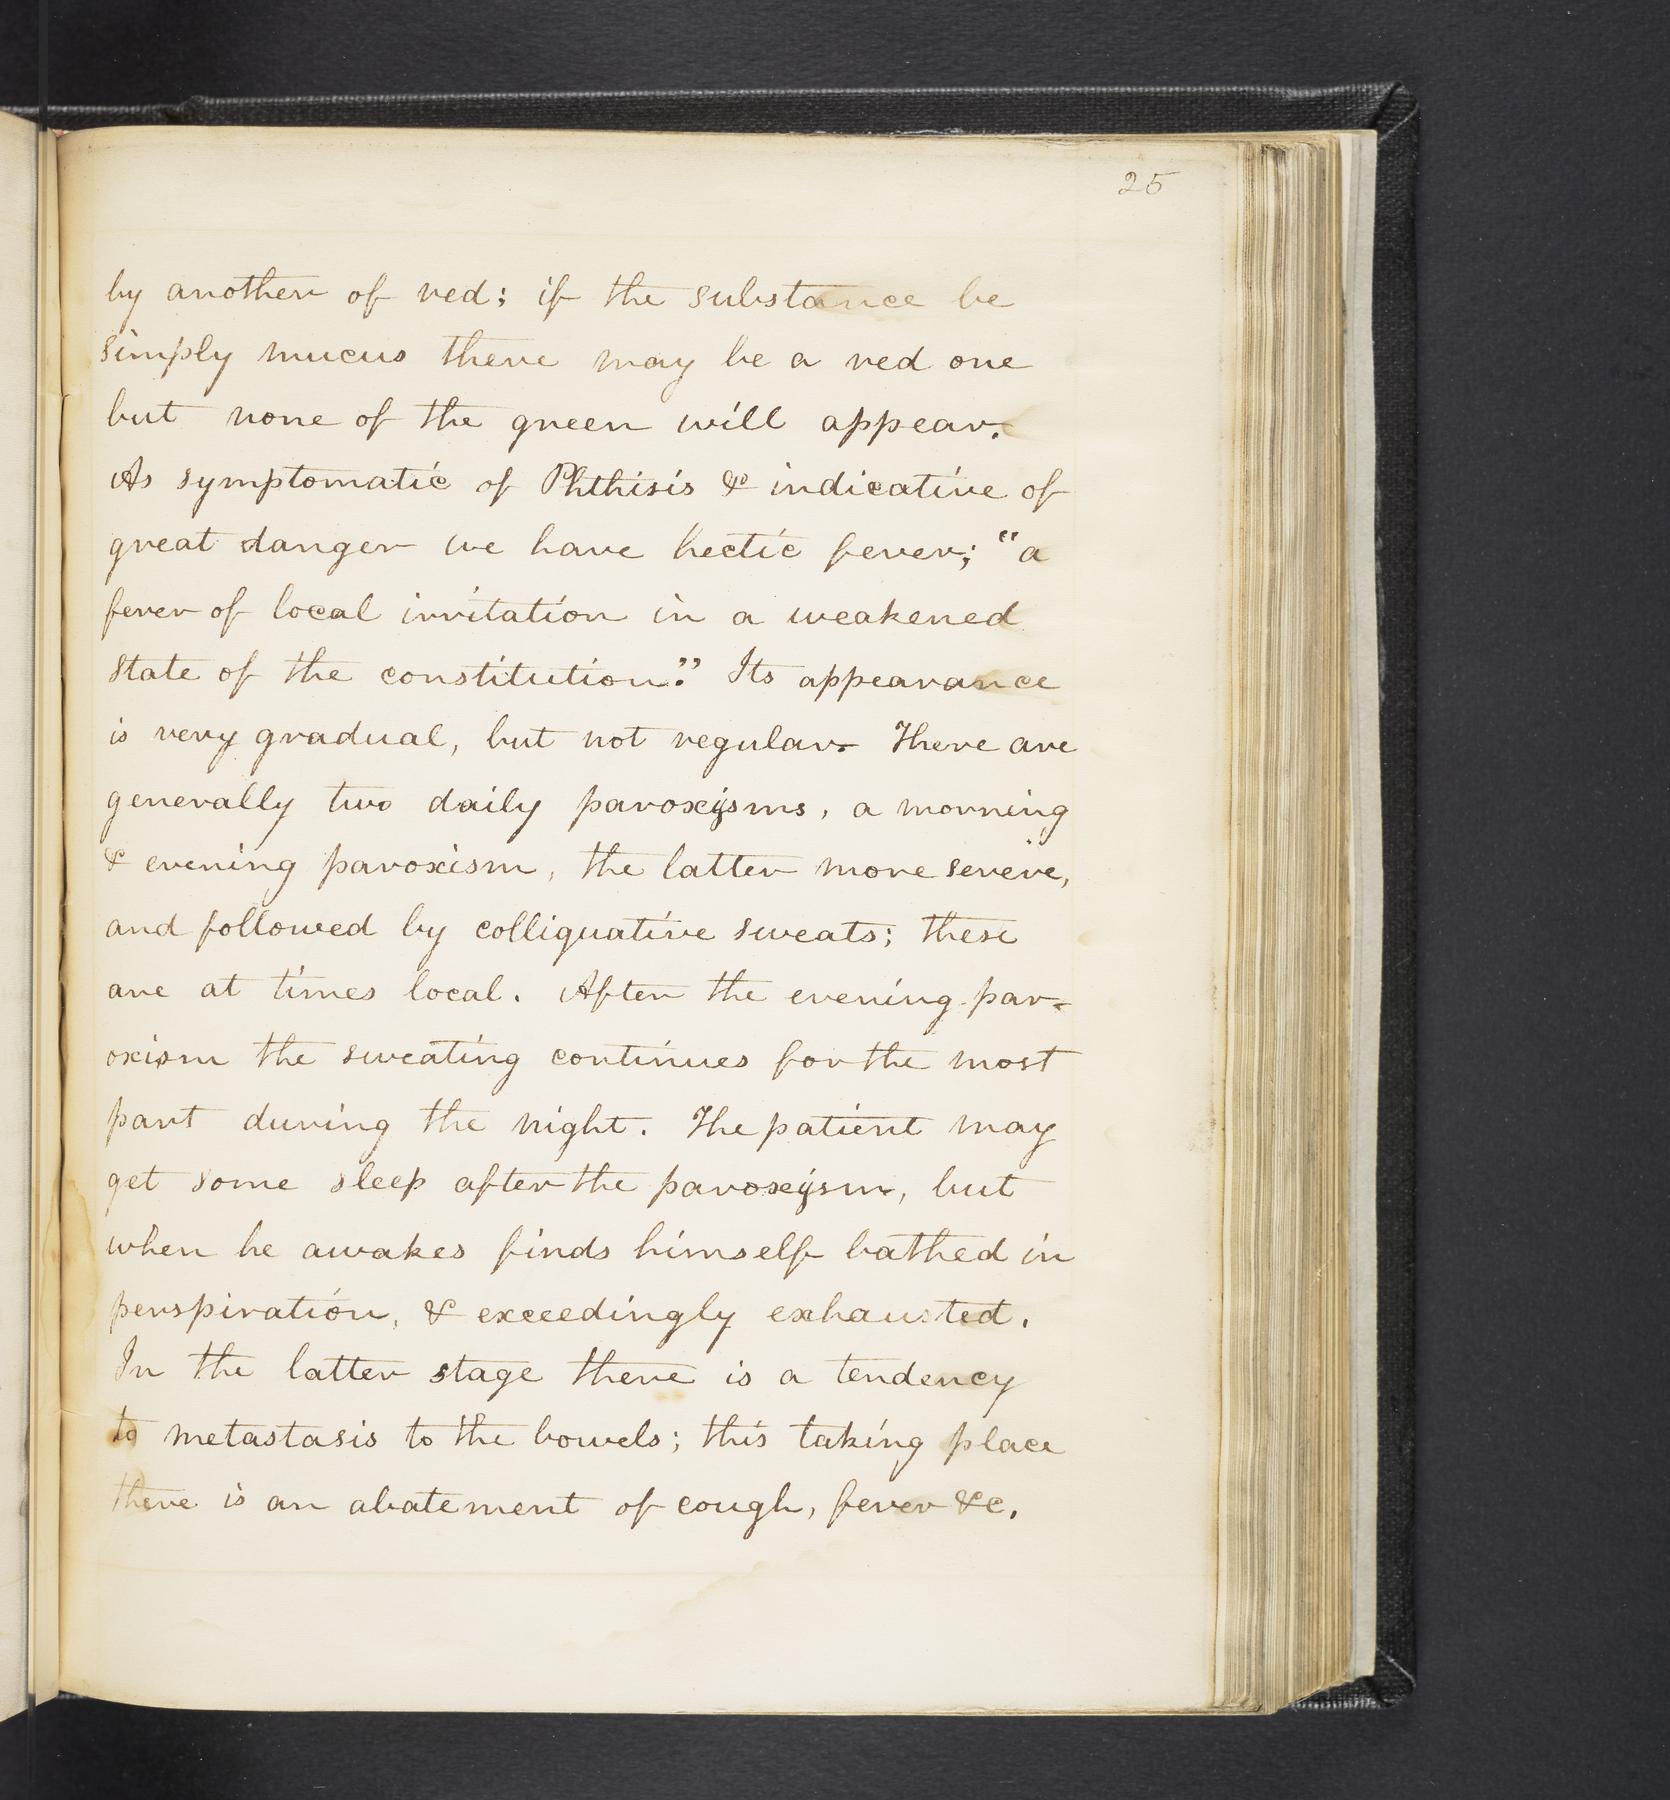 25
by another of red; if the substance be
simply mucus there may be a red one
but none of the green will appear.
As symptomatic of Phthisis & indicative of
great danger we have hectic fever; "a
fever of local irritation in a weakened
state of the constitution." Its appearance
is very gradual, but not regular. There are
generally two daily paroxysms, a morning
& evening paroxism, the latter more severe,
and followed by colliquative sweats; these
are at times local. After the evening par-
oxism the sweating continues for the most
part during the night. The patient may
get some sleep after the paroxysm, but
when he awakes finds himself bathed in
perspiration, & exceedingly exhausted.
In the latter stage there is a tendency
to metastasis to the bowels; this taking place
there is an abatement of cough, fever &c.